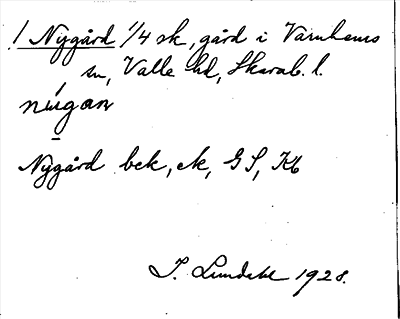 ! Nygård 1/4 sk, gård i Varnhems
sn, Valle hd, Skarab. l.
nẃgan
Nygård bek, ek, GS, Kb
I. Lundahl 1928.